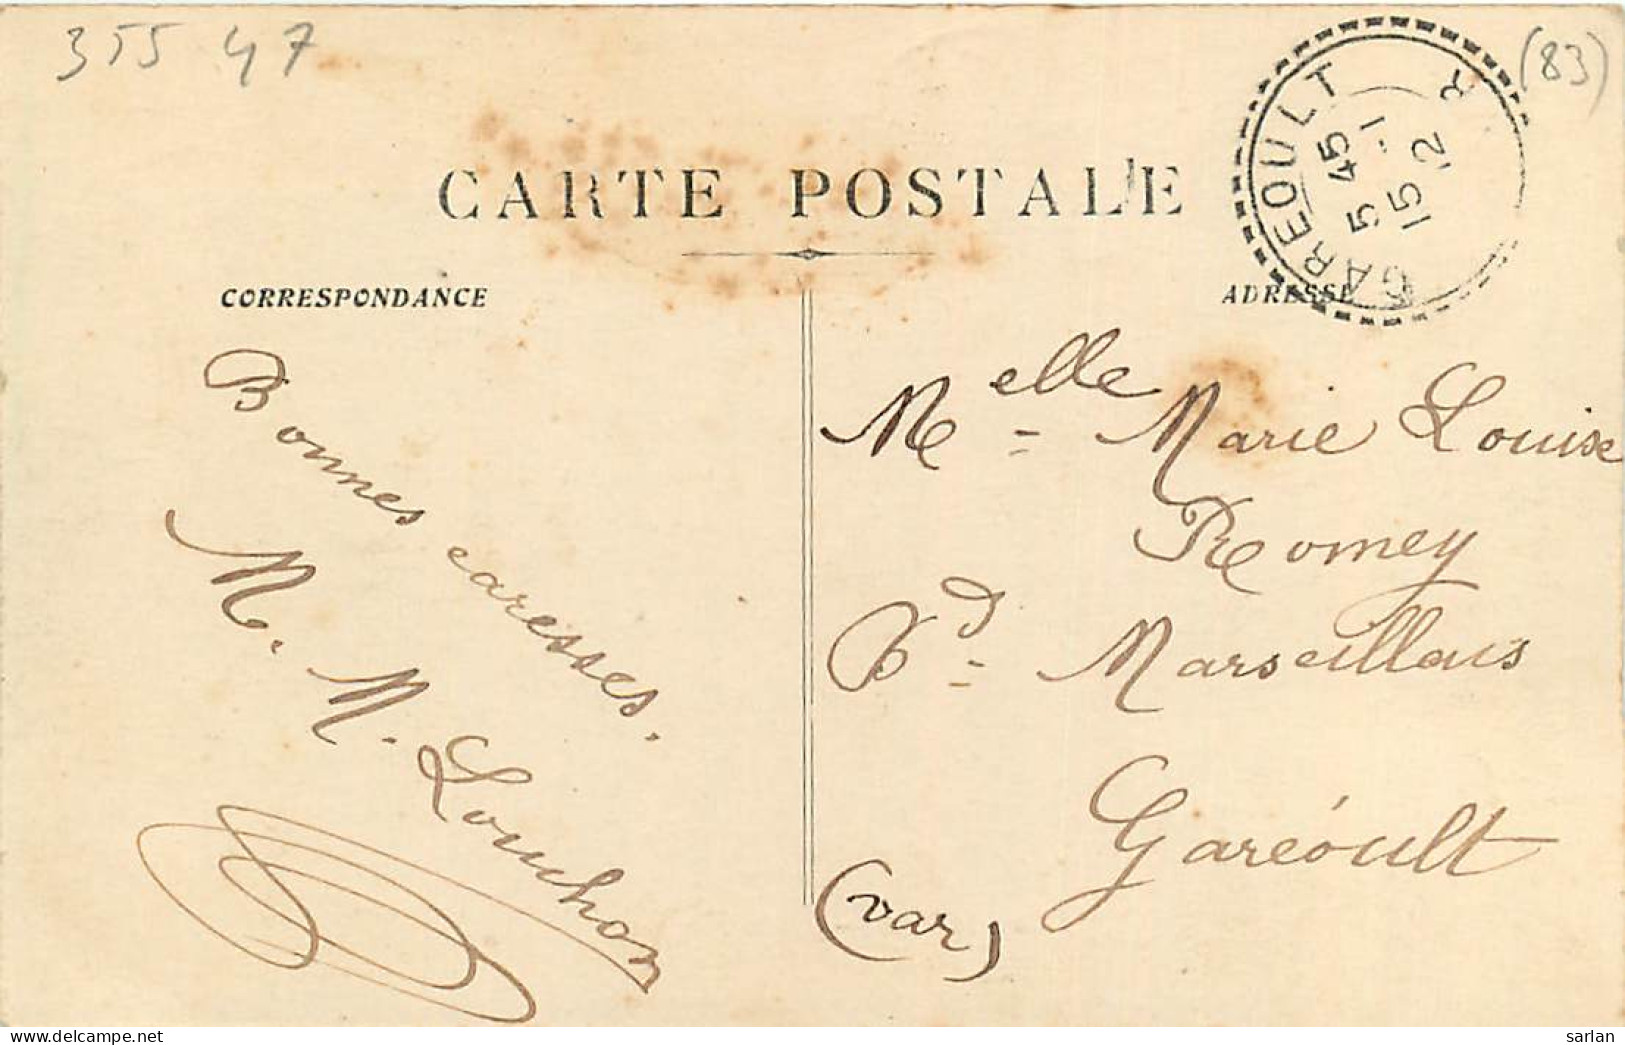 355 47
(83)
GAREOULT
5 45
15 -1
12
R
CARTE POSTALE
CORRESPONDANCE
ADRESSE
Bonnes caresses.
M. M. Louchon
Melle - Marie Louise
Romey
Bd - Marseillais
Garéoult
(Var)
sarlan